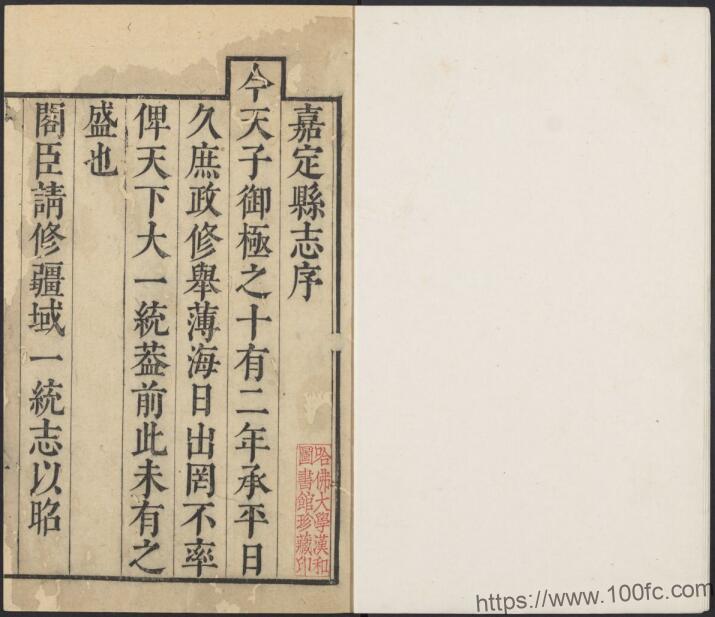 嘉定縣志序
今天子御極之十有二年承平日
久庶政修舉薄海日出罔不率
俾天下大一統葢前此未有之
盛也
閣臣請修疆域一統志以昭
哈佛大學漢和
圖書館珍藏印
https://www.100fc.com